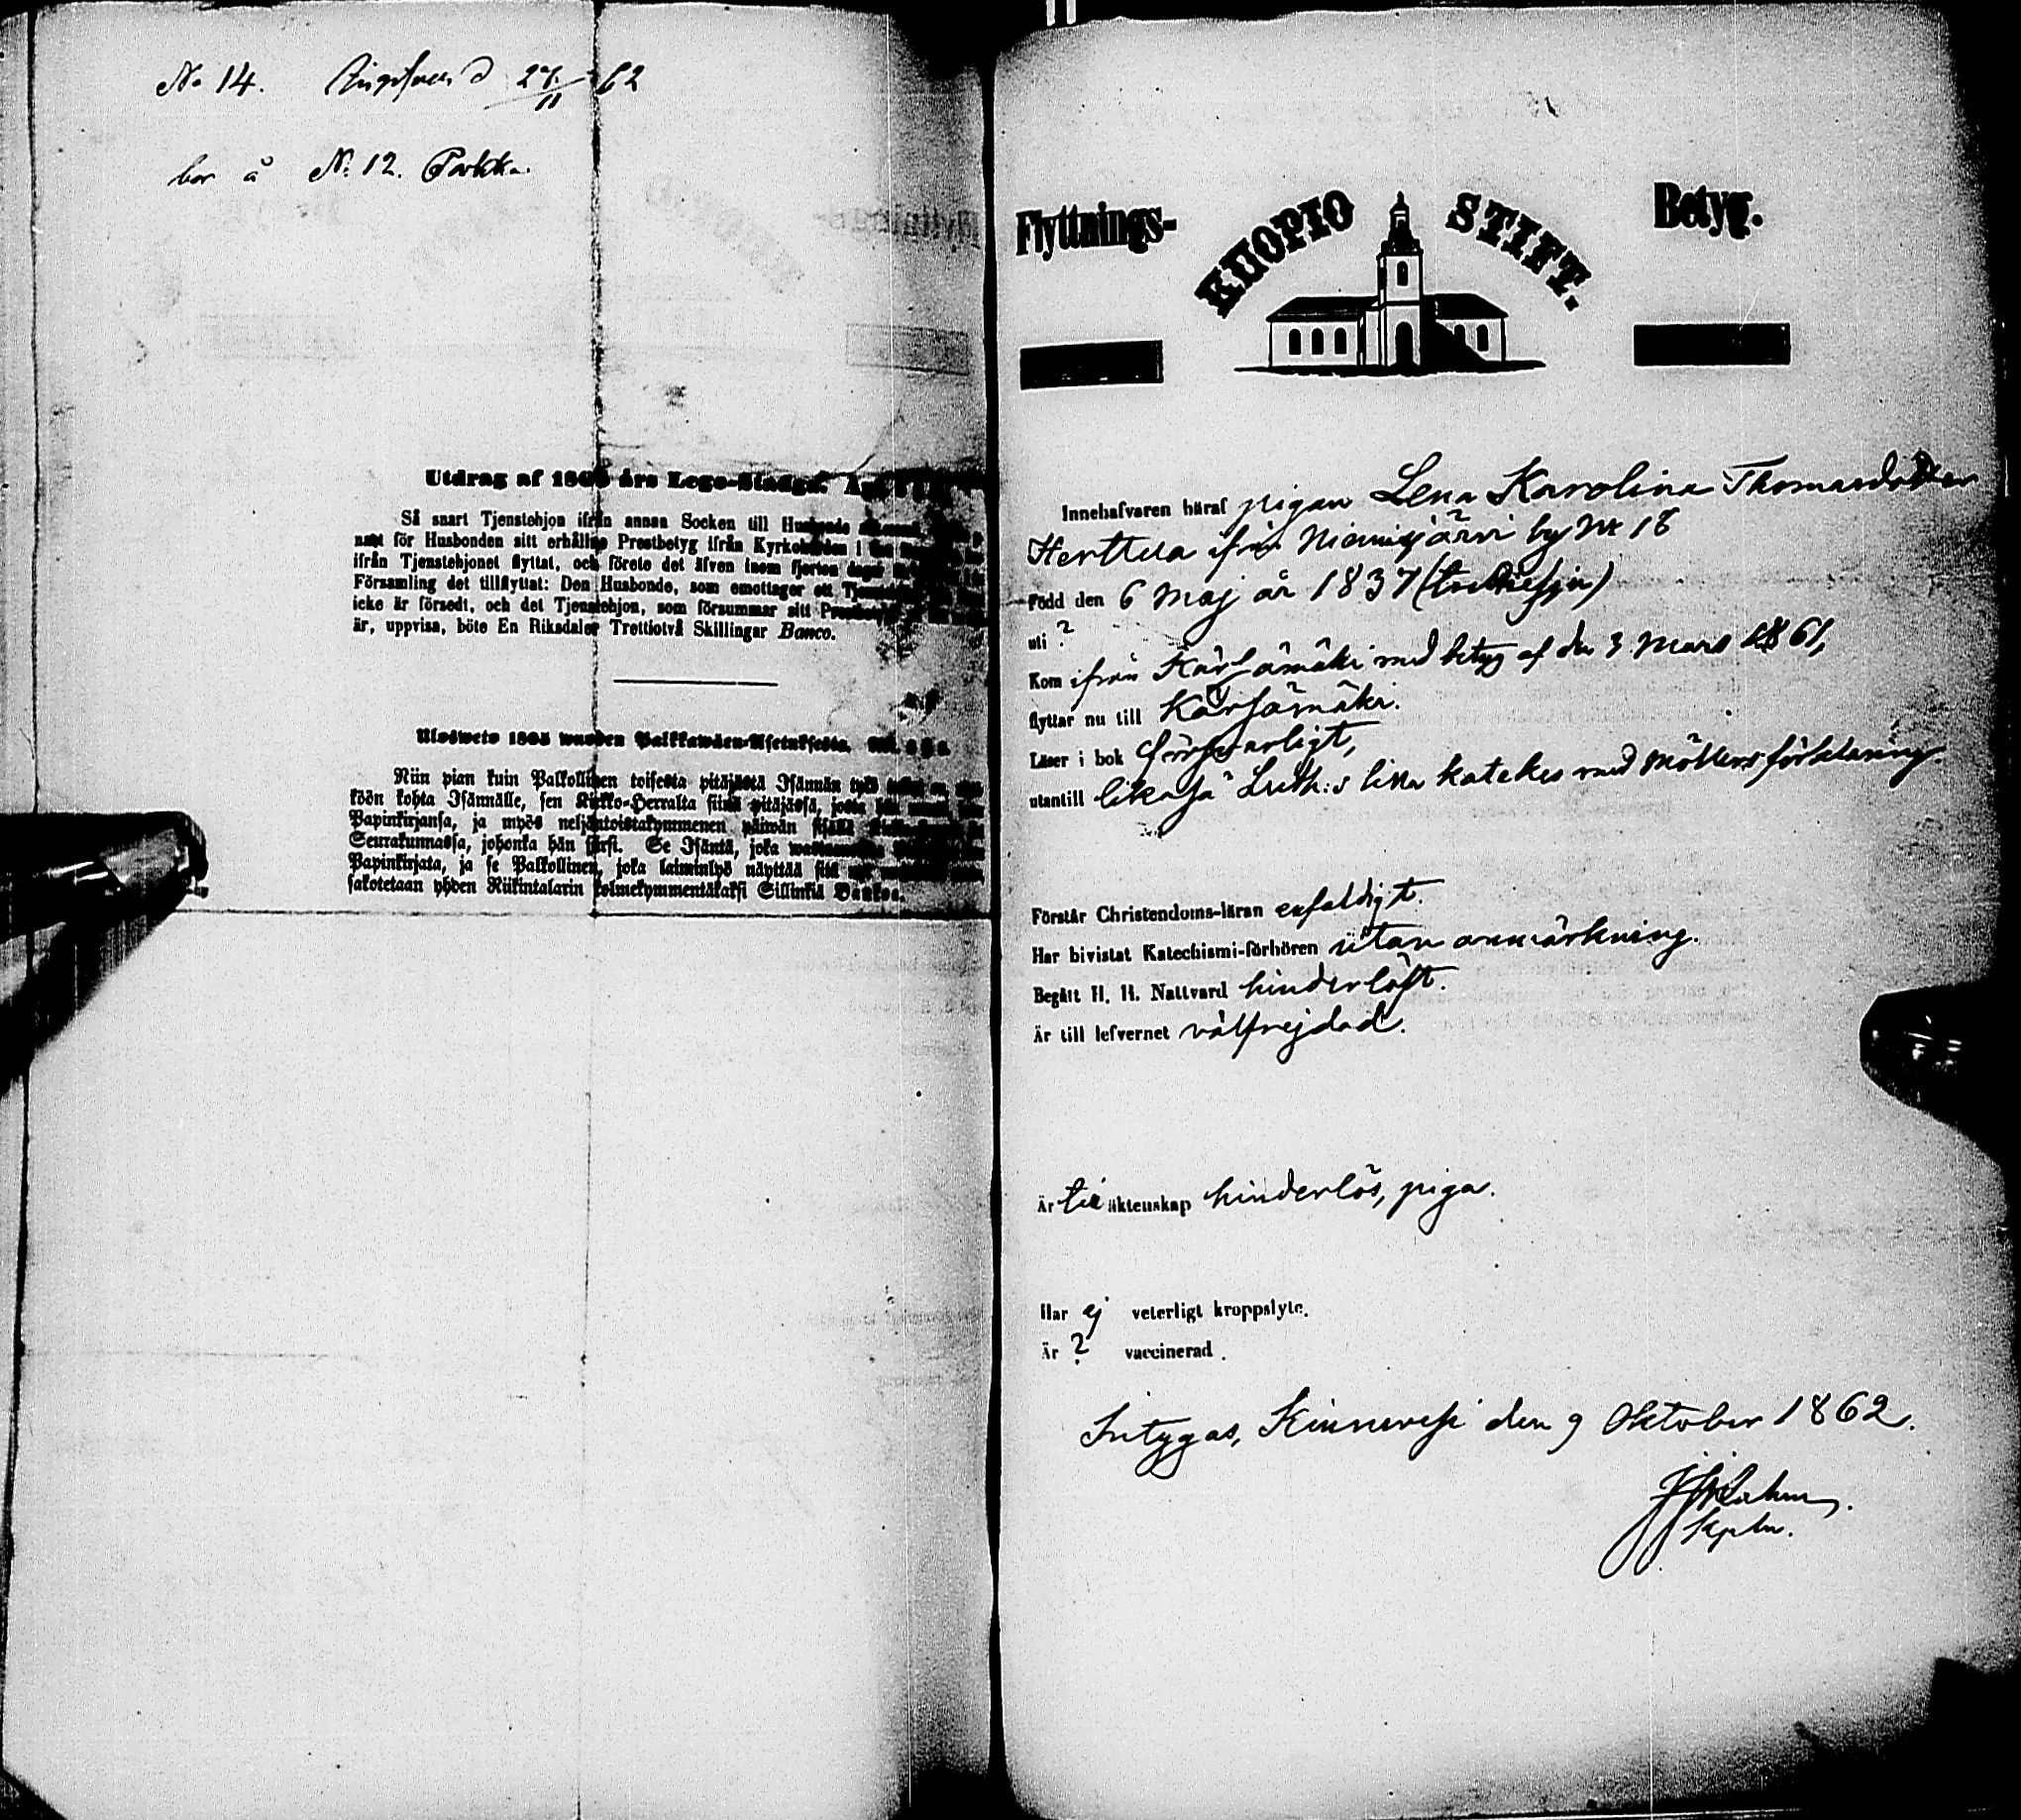 No 14. 27/11 62
bor å No 12. Parkka.
Utdrag af 1805 års Lego-Stadga.
Så snart Tjenstehjon ifrån annan Socken till Husbonde
för Husbonden sitt erhållne Prestbetyg ifrån Kyrkoherden i
ifrån Tjenstehjonet flyttat, och förete det äfven inom fjorton dagar
Församling det tillflyttat: Den Husbonde, som emottager ett
icke är försedt, och det Tjenstehjon, som försummar sitt
är, uppvisa, böte En Riksdaler Trettiotvå Skillingar Banco.
Ulosweto 1805 wuoden Palkkawäen-Asetuksesta.
Niin pian kuin Palkollinen toisesta pitäjästä Isännän työ
köön kohta Isännälle, sen Kirkko-Herralta siinä pitäjässä, josta
Papinkirjansa, ja myös neljäntoistakymmenen päiwän sisällä
Seurakunnassa, johonka hän siirsi. Se Isäntä, joka
Papinkirjata, ja se Palkollinen, joka laiminlyö näyttää sitä
sakotetaan yhden Riikintalarin kolmekymmentäkaksi Sillinkiä Bankos.
Flyttnings- KUOPIO STIFT. Betyg.
Innehafvaren häraf pigan Lena Karolina Thomasdotter
Herttua ifrån Niemisjärvi by No 18
Född den 6 Maj år 1837
uti ?
Kom ifrån Kärsämäki med betyg af den 3 Mars 1861,
flyttar nu till Kärsämäki.
Läser i bok försvarligt,
utantill likaså Luth:s lilla katekes med Möllers förklaring.
Förstår Christendoms-läran enfaldigt.
Har bivistat Katechismi-förhören utan anmärkning.
Begått H. H. Nattvard hinderlöst.
Är till lefvernet välfrejdad.
Är till äktenskap hinderlös, piga.
Har ej veterligt kroppslyte.
Är ? vaccinerad.
Intygas, Kinnula den 9 Oktober 1862.
Kapln.